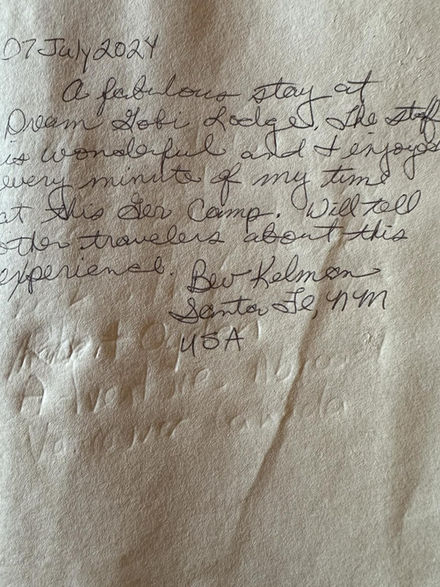 07 July 2024
A fabulous stay at
Dream Gobi Lodge. The staff
is wonderful and I enjoyed
every minute of my time
at this Ger Camp. Will tell
other travelers about this
experience. Bev Kelman
Santa Fe, NM
USA
Robert
Vancouver Canada